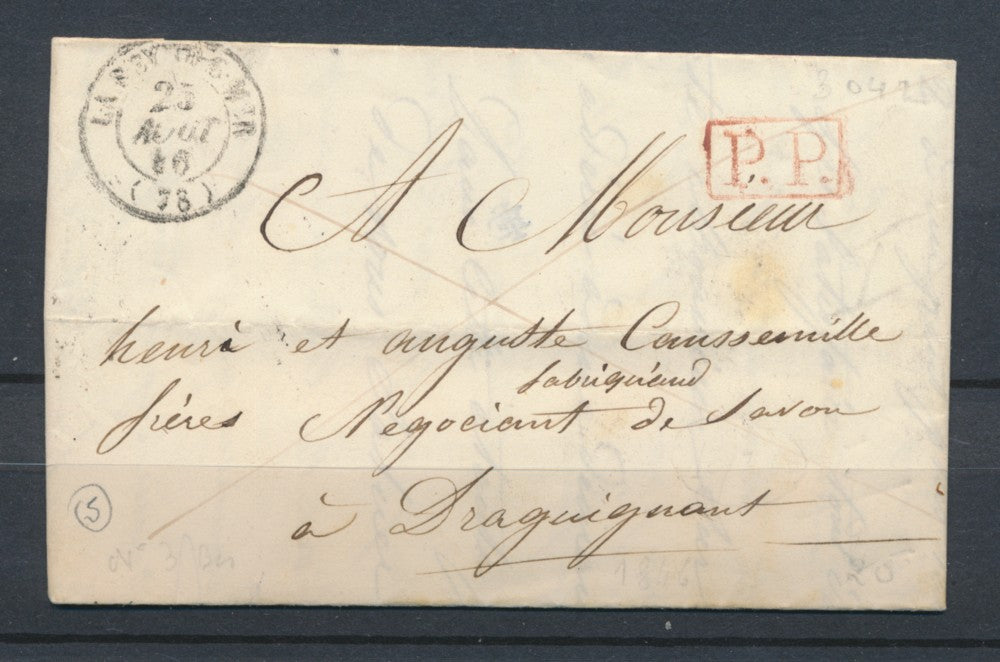 LA SEYNE-S-MER
25
AOUT
46
(78)
P.P.
3042
A Monsieur
henri et auguste Caussemille
fabriquand
frères Negociant de Savon
à Draguignant
5
N° 3/Bis
1846
20